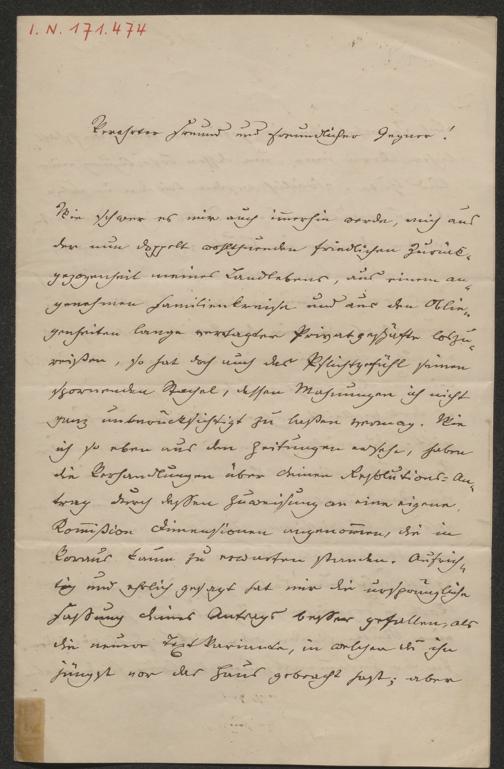 I. N. 171.474
Verehrter Freund und freundlicher Gegner!
Wie schwer es mir auch immerhin werde, mich aus
der nun doppelt wohlthuenden friedlichen Zurück-
gezogenheit meines Landlebens, aus einem an-
genehmen Familienkreise und aus den Oblie-
genheiten lange vertagter Privatgeschäfte loszu-
reißen, so hat doch auch das Pflichtgefühl seinen
spornenden Stachel, dessen Mahnungen ich nicht
ganz unberücksichtigt zu lassen vermag. Wie
ich so eben aus den Zeitungen ersehe, haben
die Verhandlungen über deinen Resolutions-An-
trag durch dessen Zuweisung an eine eigene
Kommission Dimensionen angenommen, die in
Voraus kaum zu erwarten standen. Aufrich-
tig und ehrlich gesagt hat mir die ursprüngliche
Fassung deines Antrags besser gefallen, als
die neuere Text Variante, in welcher du ihn
jüngst vor das Haus gebracht hast; aber